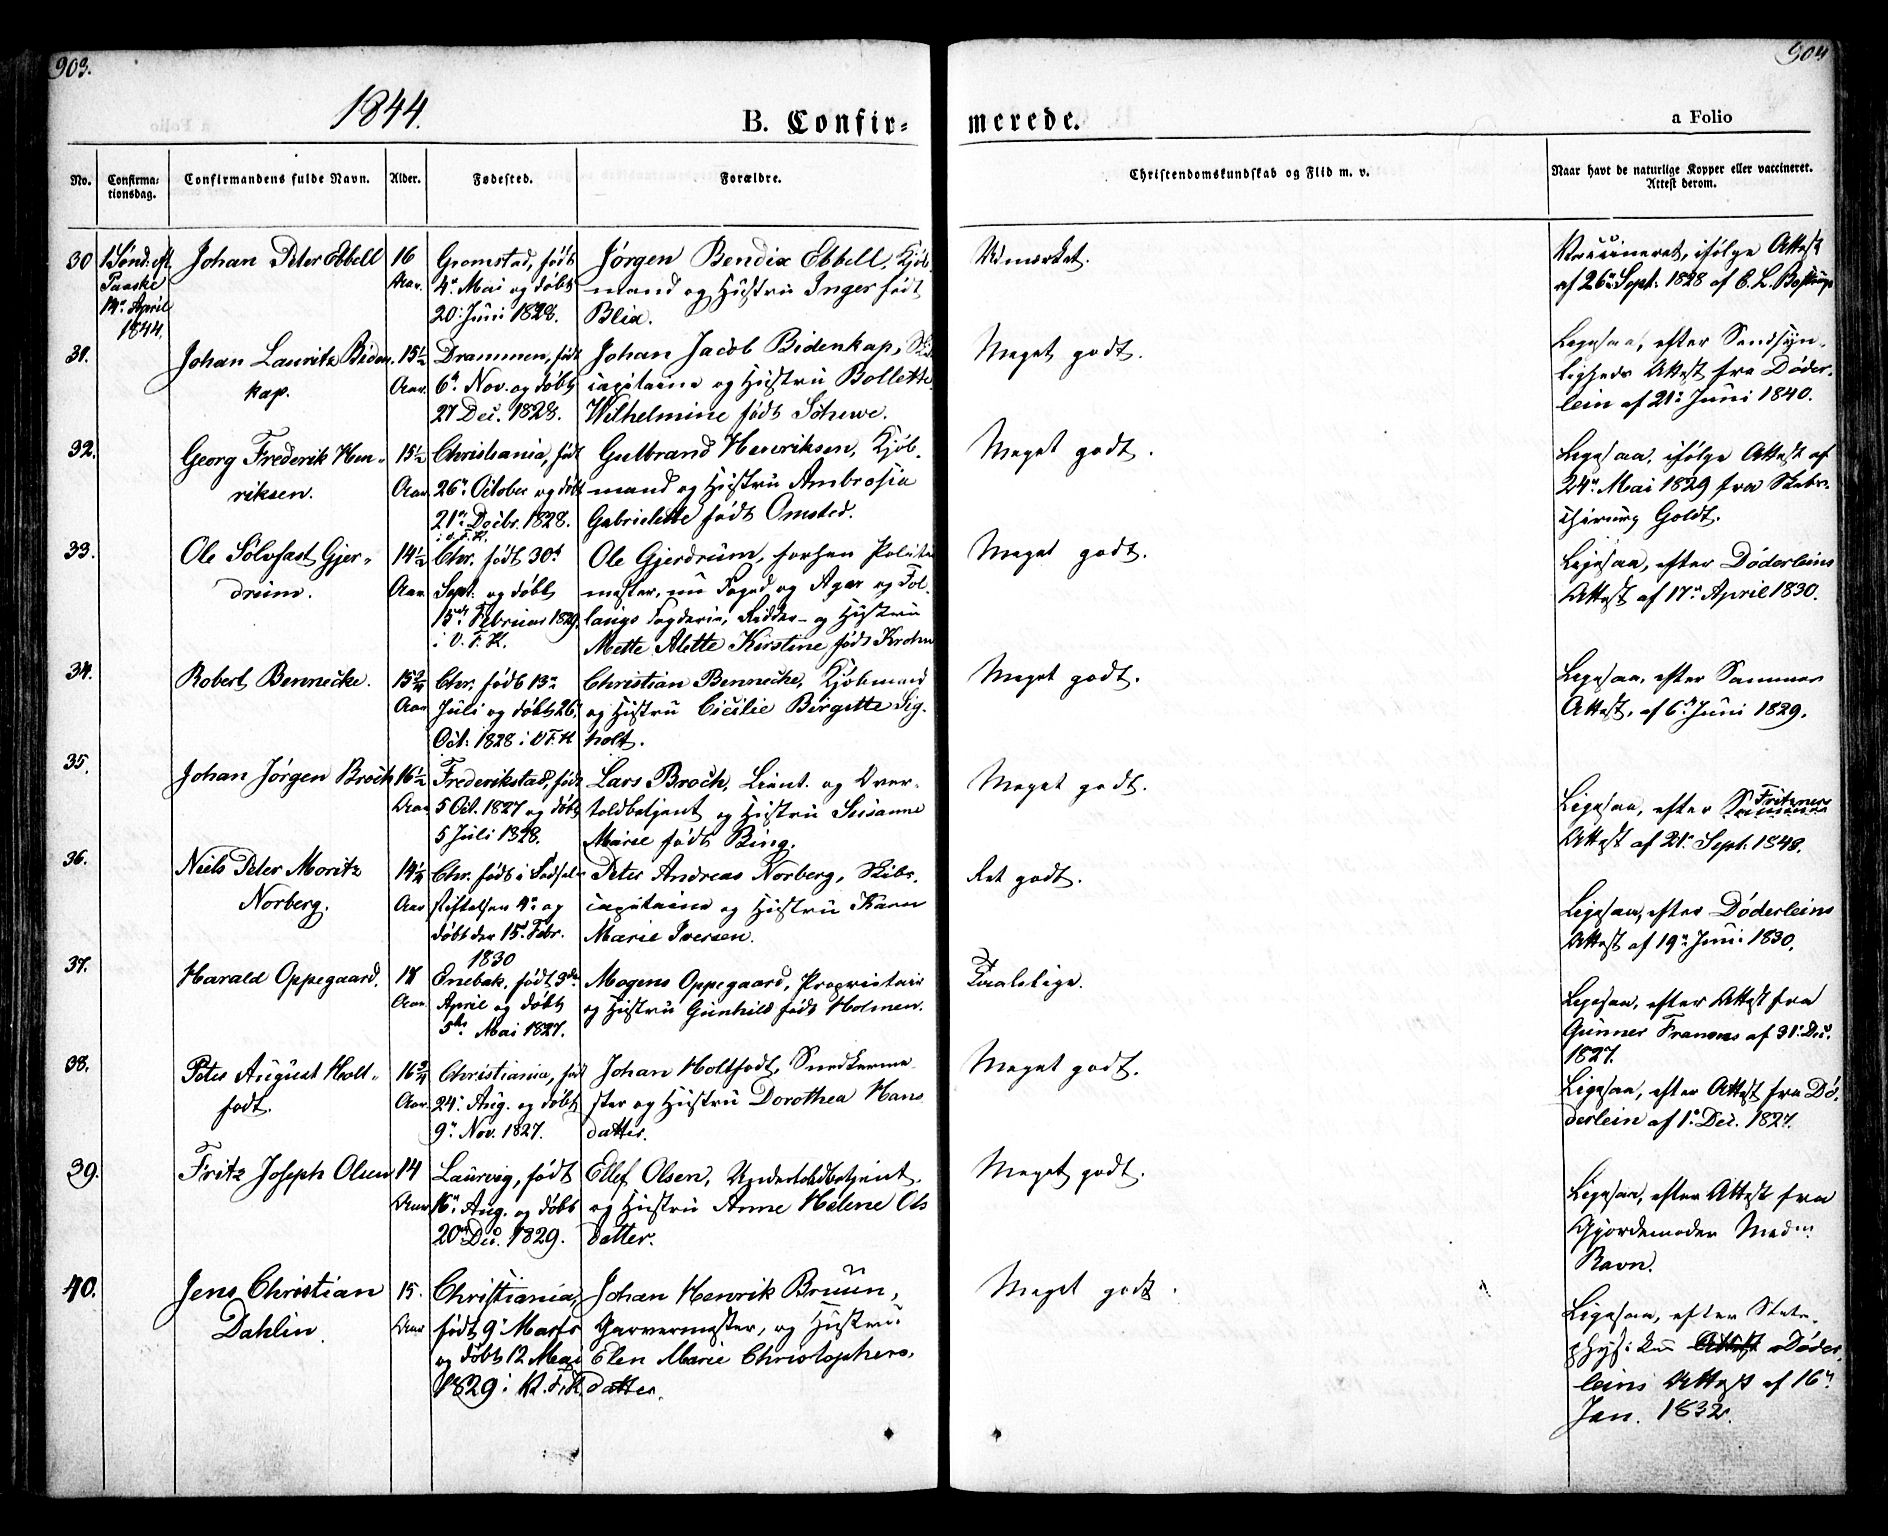 903.
904
1844.
B. Confir-
merede.
a Folio
No.
Confirma-
tionsdag.
Confirmandens fulde Navn.
Alder.
Fødested.
Forældre.
Christendomskundskab og Flid m. v.
Naar havt de naturlige Kopper eller vaccineret.
Attest derom.
30
1 Sønd. eft
Paaske
14n April
1844.
Johan Peter Ebbell
16
Aar.
Gromstad, født
4n Mai og døbt
20 Juni 1828.
Jørgen Bendix Ebbell, Kjøb-
mand og Hustru Inger født
Blix.
Udmærket.
Vaccineret, ifølge Attest
af 26n Sept. 1828 af C. L. Bostrup
31.
Johan Lauritz Biden-
kap.
15½
Aar.
Drammen, født
6n Nov. og døbt
27 Dec. 1828.
Johan Jacob Bidenkap,
capitaine og Hustru Bollette
Wilhelmine født Schewe.
Meget godt.
Ligesaa, efter Sandsyn-
ligheds Attest fra Døder-
lein af 21n Juni 1840.
32.
Georg Frederik Hen-
riksen.
15½
Aar.
Christiania, født
26n October og døbt
21n Decbr. 1828.
i V. F. K.
Gulbrand Henriksen, Kjøb-
mand og Hustru Ambrosia
Gabrielette født Omsted.
Meget godt.
Ligesaa, ifølge Attest af
24n Mai 1829 fra Skibs-
chirurg Goldt.
33.
Ole Sølvfast Gjer-
drum.
14½
Aar.
Chr. født 30t
Sept. og døbt
15de Februar 1829,
i V. F. K.
Ole Gjerdrum, forhen Politi-
mester, nu Foged og Ager og Fol-
laugs Fogderie, Ridder- og Hustru
Mette Alette Kirstine, født Krohn
Meget godt.
Ligesaa, efter Døderleins
Attest af 17n April 1830.
34.
Robert Bennecke.
15¾
Aar.
Chr. født 13n
Juli og døbt 26.
Oct. 1828 i V F. K
Christian Bennecke, Kjøbmand
og Hustru Cicilie Birgitte Sig-
holt.
Meget godt.
Ligesaa, efter Sammes
Attest, af 6n Juni 1829.
35.
Johan Jørgen Broch
16½
Aar.
Frederikstad, født
5 Oct. 1827 og døbt
5 Juli 1828.
Lars Broch, Lieut. og Over-
toldbetjent og Hustru Susanne
Marie født Bing.
Meget godt.
Ligesaa, efter Fritzners
Attest af 21n Sept. 1840.
36.
Niels Peter Moritz
Norberg.
14¼
Aar
Chr. født i Fødsels-
stiftelsen 4n og
døbt den 15. Febr.
1830
Peter Andreas Norberg, Skibs-
capitaine og Hustru Karn
Marie Iversen.
Ret godt.
Ligesaa, efter Døderleins
Attest af 19n Juni 1830.
37.
Harald Oppegaard.
17
Aar.
Enebak, født 3die
April og døbt
5te Mai 1827.
Mogens Oppegaard, Proprietair
og Hustru Gunhild født Holmen.
Taalelige.
Ligesaa, efter Attest fra
Gunner Fransen af 31. Dec.
1827.
38.
Peter August Holt-
fodt.
16¾
Aar.
Christiania, født
24n Aug. og døbt
9n Nov. 1827.
Johan Holtfodt, Snedkerme-
ster og Hustru Dorothea Hans
datter.
Meget godt.
Ligesaa, efter Attest fra Dø-
derlein af 1n Dec. 1827.
39.
Fritz Joseph Olsen
14
Aar
Laurvig, født
16n Aug. og døbt
20n Dec. 1829.
Ellef Olsen, Undertoldbetjent.
og Hustru Anne Helene Ols
datter.
Meget godt.
Ligesaa, efter Attest fra
Gjordemoder Madm
Ravn.
40.
Jens Christian
Dahlin.
15.
Aar
Christiania,
født 9n Marts
og døbt 12 Mai
1829 i V. F. K.
Johan Henrik Bruun,
Garvermester, og Hustru
Elen Marie Christophers-
datter.
Meget godt.
Ligesaa, efter Stats-
Døder-
leins Attest af 16n
Jan. 1832.